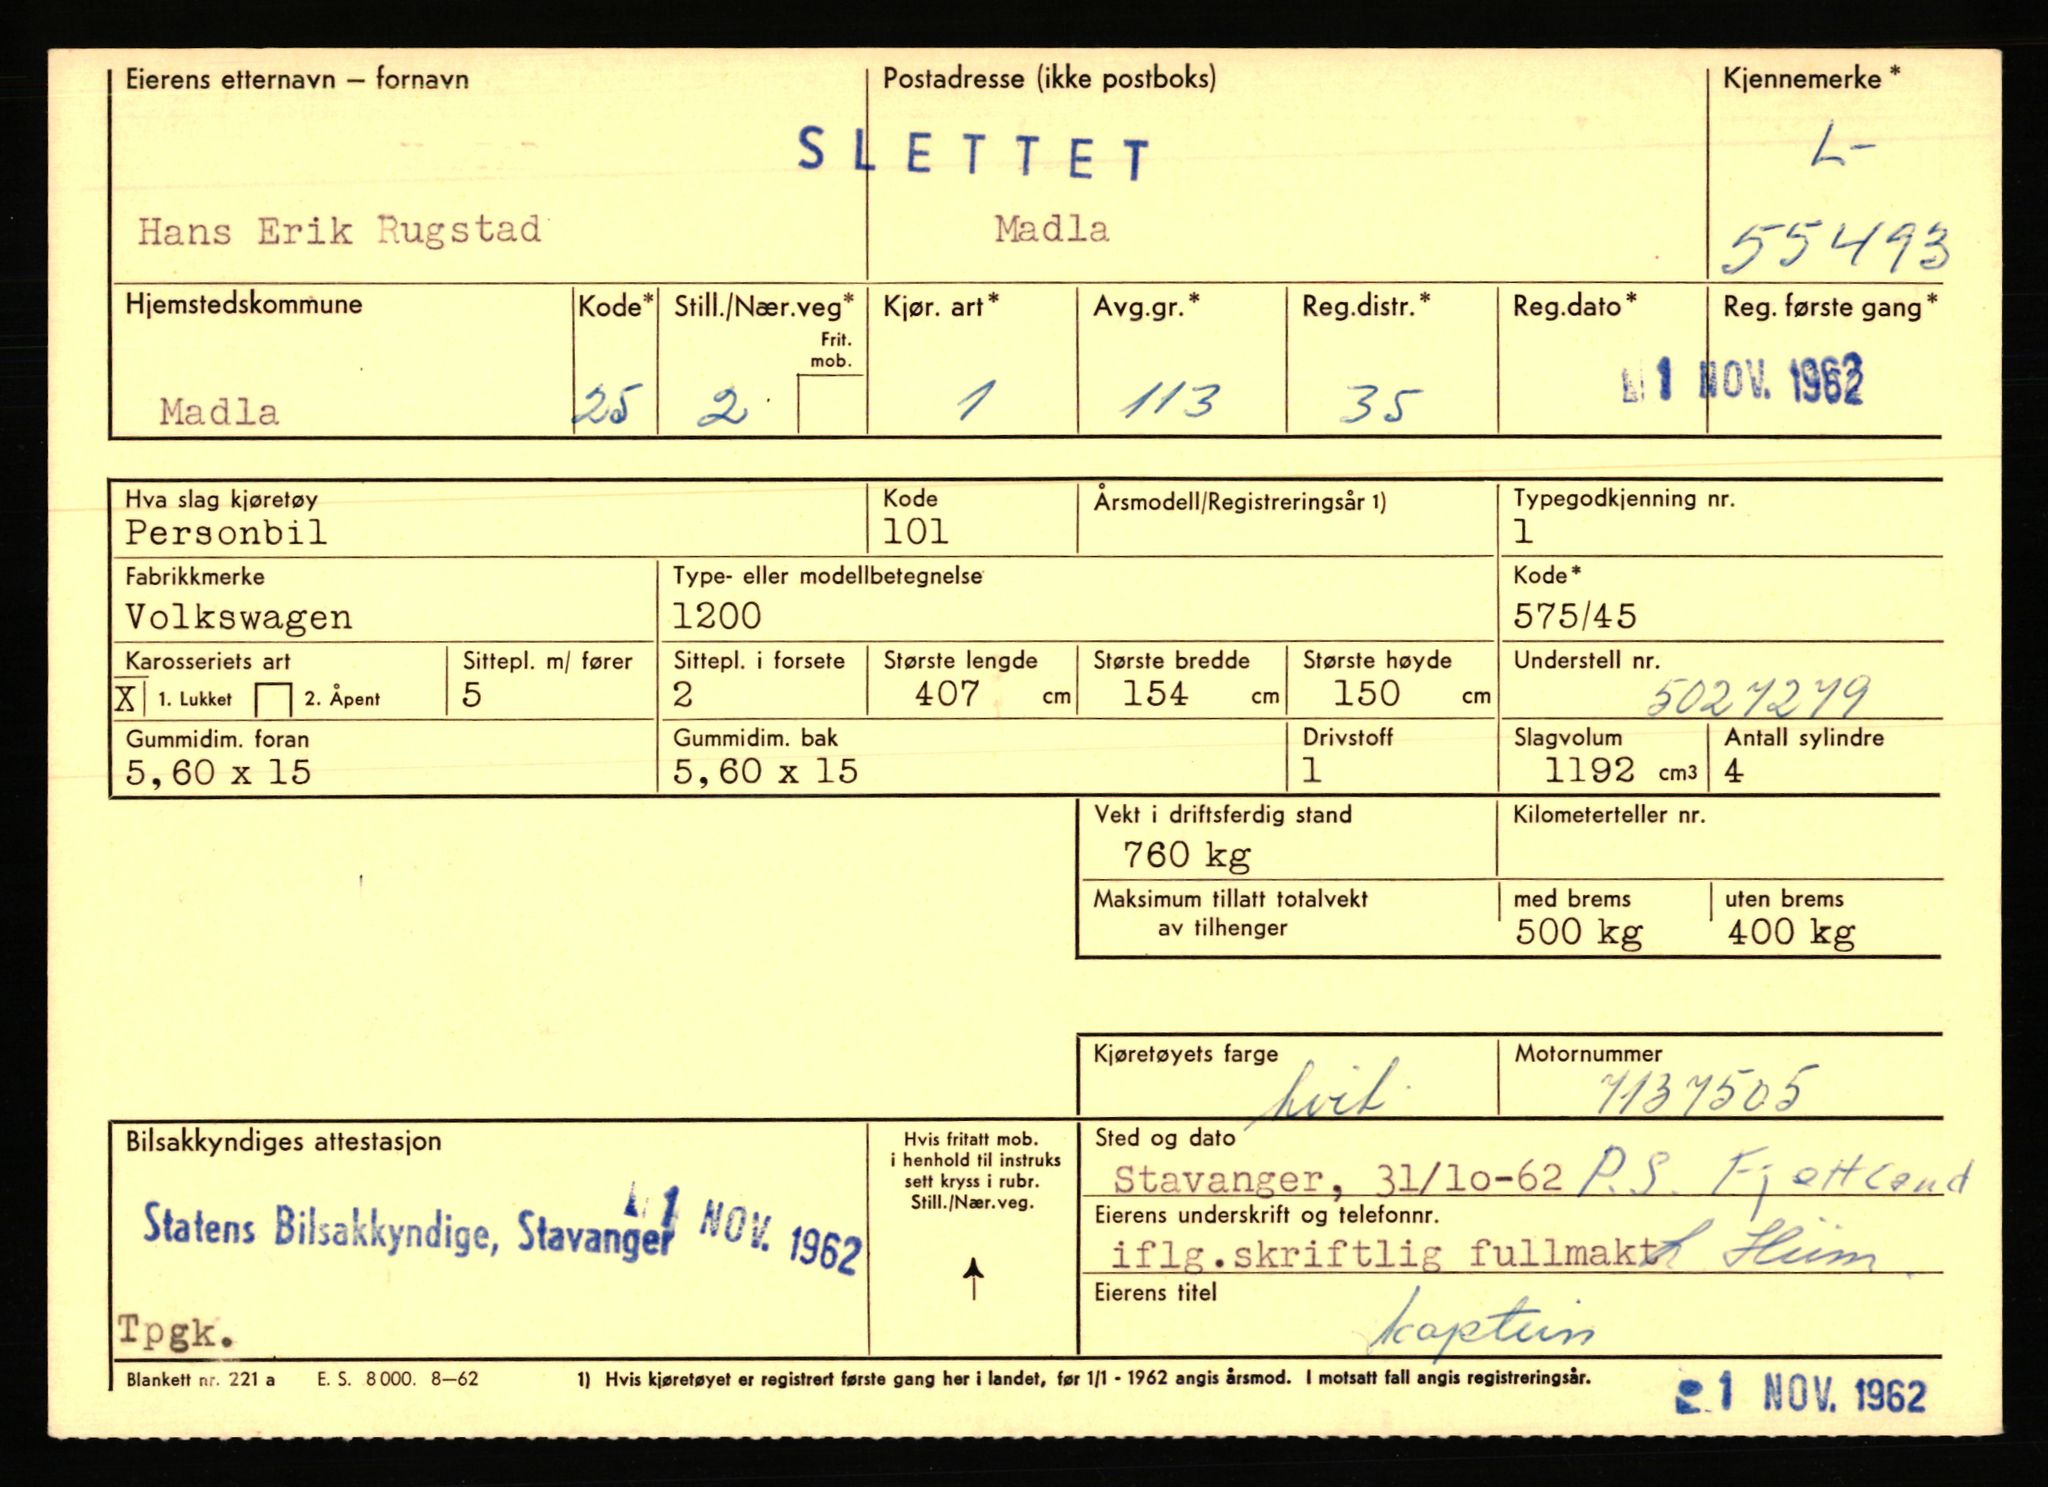 Eierens etternavn – fornavn Postadresse (ikke postboks) Kjennemerke*
SLETTET L-
Hans Erik Rugstad Madla 55493
Hjemstedskommune Kode* Still./Nær.veg* Kjør. art* Avg.gr.* Reg.distr.* Reg.dato* Reg. første gang*
Frit.
mob.
Madla 25 2 1 113 35 1 NOV. 1962
Hva slag kjøretøy Kode Årsmodell/Registreringsår 1) Typegodkjenning nr.
Personbil 101 1
Fabrikkmerke Type- eller modellbetegnelse Kode*
Volkswagen 1200 575/45
Karosseriets art Sittepl. m/ fører Sittepl. i forsete Største lengde Største bredde Største høyde Understell nr.
X 1. Lukket 2. Åpent 5 2 407 cm 154 cm 150 cm 5027279
Gummidim. foran Gummidim. bak Drivstoff Slagvolum Antall sylindre
5,60 x 15 5,60 x 15 1 1192 cm3 4
Vekt i driftsferdig stand Kilometerteller nr.
760 kg
Maksimum tillatt totalvekt med brems uten brems
av tilhenger 500 kg 400 kg
Kjøretøyets farge Motornummer
hvit 7137505
Bilsakkyndiges attestasjon Hvis fritatt mob. Sted og dato
i henhold til instruks
sett kryss i rubr.
Still./Nær.veg.
Stavanger, 31/10-62 P.S. Fjettland
Statens Bilsakkyndige, Stavanger 1 NOV. 1962
Eierens underskrift og telefonnr.
iflg.skriftlig fullmakt
Eierens titel
Tpgk. kaptein
Blankett nr. 221 a E. S. 8000. 8–62 1) Hvis kjøretøyet er registrert første gang her i landet, før 1/1 - 1962 angis årsmod. I motsatt fall angis registreringsår.
1 NOV. 1962